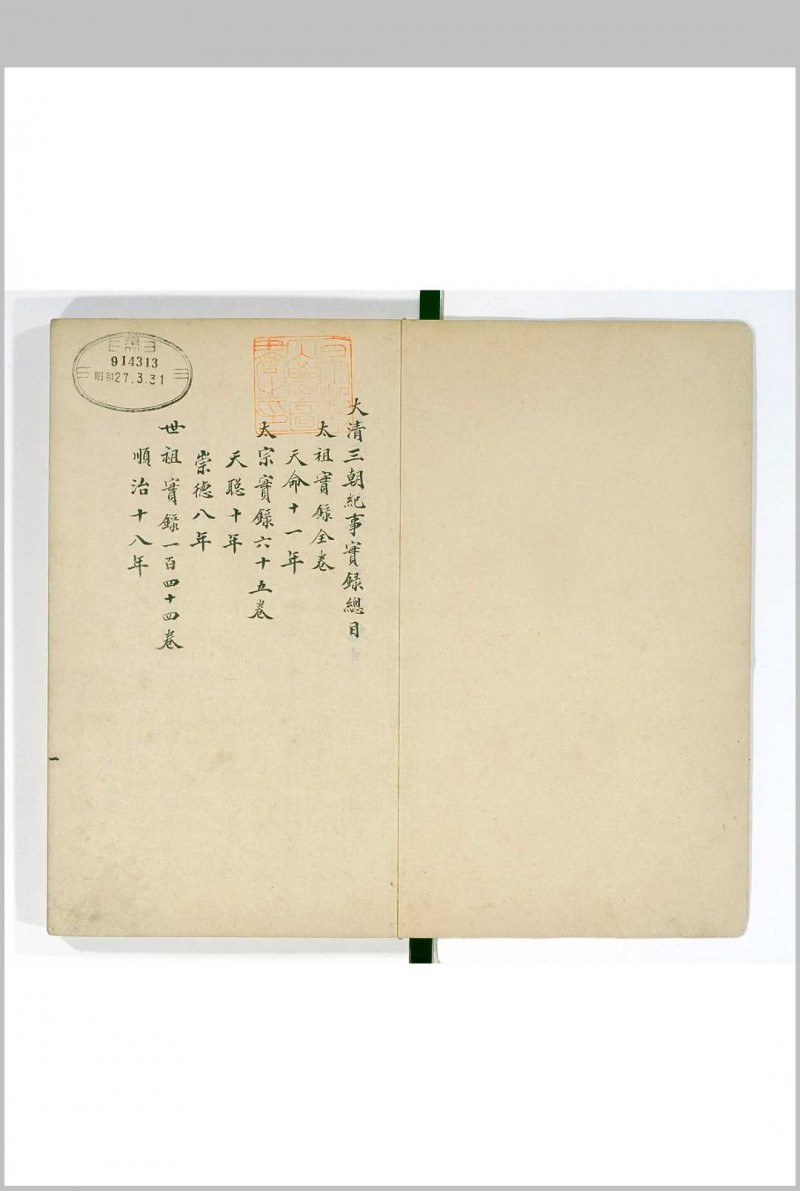 大清三朝紀事實録總目
太祖實録全卷
天命十一年
太宗實録六十五卷
天聡十年
崇德八年
世祖實録一百四十四卷
順治十八年
914313
昭和27.3.31